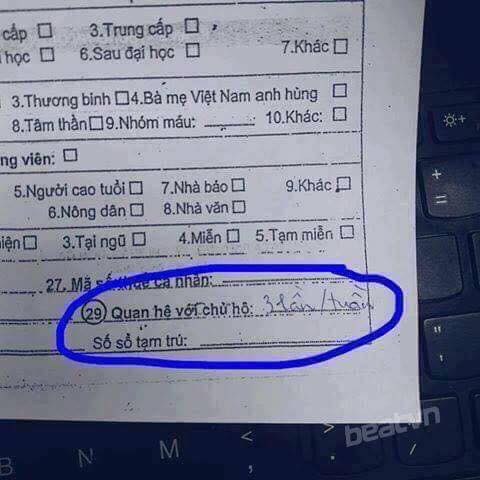 cấp ☐ 3.Trung cấp ☐
học ☐ 6.Sau đại học ☐ 7.Khác ☐
3.Thương binh ☐ 4.Bà mẹ Việt Nam anh hùng ☐
8.Tâm thần ☐ 9.Nhóm máu: 10.Khác: ☐
ng viên: ☐
5.Người cao tuổi ☐ 7.Nhà báo ☐ 9.Khác ☐
6.Nông dân ☐ 8.Nhà văn ☐
iện ☐ 3.Tại ngũ ☐ 4.Miễn ☐ 5.Tạm miễn ☐
27. Mã số thuế cá nhân:
29 Quan hệ với chủ hộ: 3 lần/tuần
Số sổ tạm trú:
beatvn
B N M < , > .